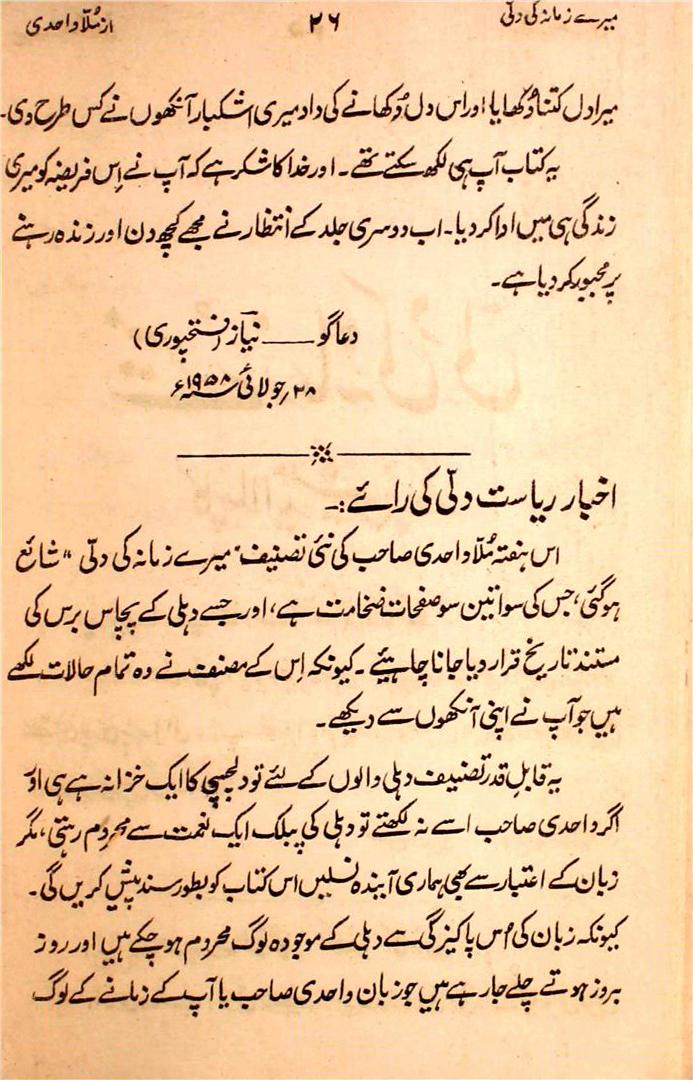 میرے زمانہ کی دلّی ۲۶ از مُلّا واحدی
میرا دل کتنا دُکھایا اور اس دل دُکھانے کی داد میری اشکبار آنکھوں نے کس طرح دی۔
یہ کتاب آپ ہی لکھ سکتے تھے۔ اور خدا کا شکر ہے کہ آپ نے اِس فریضہ کو میری
زندگی ہی میں ادا کر دیا۔ اب دوسری جلد کے انتظار نے مجھے کچھ دن اور زندہ رہنے
پر مجبور کر دیا ہے۔
دعاگو ــــ نیاز (فتحپوری)
۲۸؍ جولائی سنہ ۱۹۵۸ء
اخبار ریاست دلّی کی رائے:۔
اس ہفتہ مُلّا واحدی صاحب کی نئی تصنیف "میرے زمانہ کی دلّی" شائع
ہوگئی، جس کی سوا تین سو صفحات ضخامت ہے، اور جسے دہلی کے پچاس برس کی
مستند تاریخ قرار دیا جانا چاہئیے۔ کیونکہ اِس کے مصنف نے وہ تمام حالات لکھے
ہیں جو آپ نے اپنی آنکھوں سے دیکھے۔
یہ قابلِ قدر تصنیف دہلی والوں کے لئے تو دلچسپی کا ایک خزانہ ہے ہی اور
اگر واحدی صاحب اسے نہ لکھتے تو دہلی کی پبلک ایک نعمت سے محروم رہتی، مگر
زبان کے اعتبار سے بھی ہماری آیندہ نسلیں اس کتاب کو بطور سند پیش کریں گی۔
کیونکہ زبان کی اُس پاکیزگی سے دہلی کے موجودہ لوگ محروم ہو چکے ہیں اور روز
بروز ہوتے چلے جا رہے ہیں جو زبان واحدی صاحب یا آپ کے زمانے کے لوگ